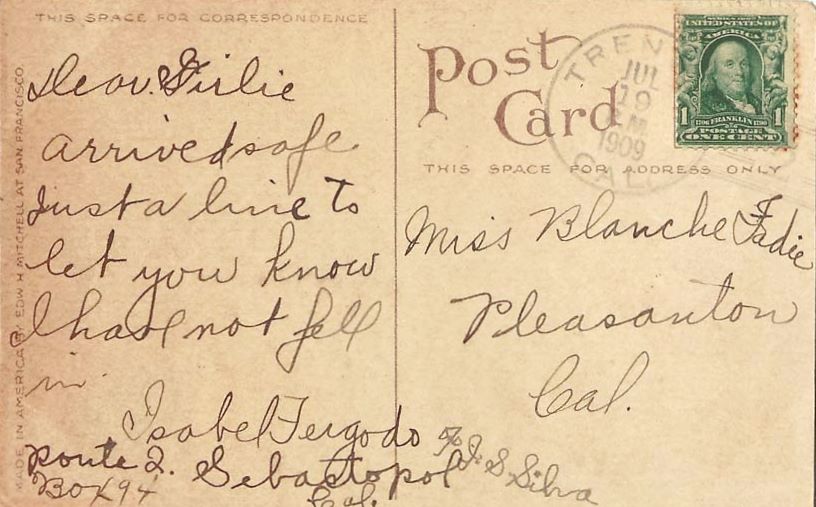 THIS SPACE FOR CORRESPONDENCE
Dear Girlie
arrived safe
Just a line to
let you know
I have not fell
in.
Isabel
Route 2. Sebastopol
Box 94 Cal.
℅ J. S Silva
MADE IN AMERICA BY EDW H MITCHELL AT SAN FRANCISCO.
Post
Card
THIS SPACE FOR ADDRESS ONLY
Miss Blanche Fadie
Pleasanton
Cal.
TREN
JUL
19
1909
CAL
SERIES 1902
UNITED STATES OF
AMERICA
1 1706 FRANKLIN 1790 1
POSTAGE
ONE CENT